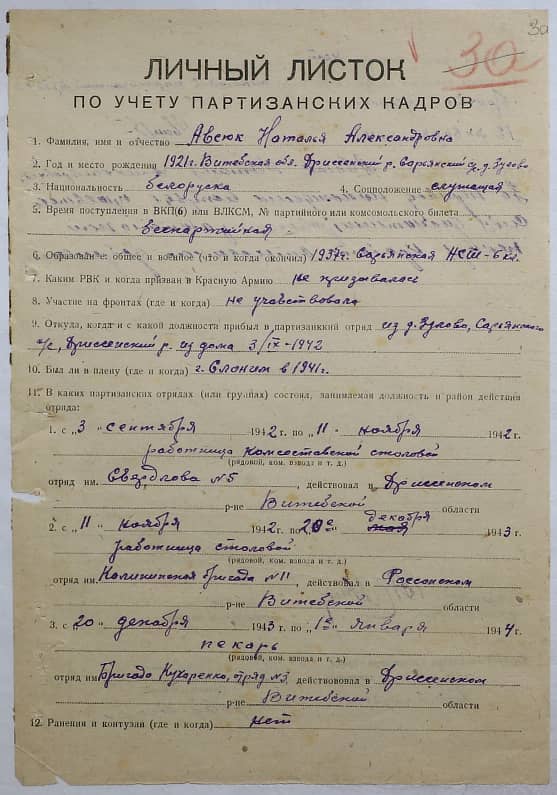 30
30
ЛИЧНЫЙ ЛИСТОК
ПО УЧЕТУ ПАРТИЗАНСКИХ КАДРОВ
1. Фамилия, имя и отчество Авсюк Наталья Александровна
2. Год и место рождения 1921г. Витебская обл. Дриссенский р. Сарьянский с/с, д. Зулово
3. Национальность белоруска 4. Соцположение служащая
5. Время поступления в ВКП(б) или ВЛКСМ, № партийного или комсомольского билета
беспартийная
6. Образование: общее и военное (что и когда окончил) 1937г. Сарьянская НСШ - 6 кл.
7. Каким РВК и когда призван в Красную Армию не призывалась
8. Участие на фронтах (где и когда) не участвовала
9. Откуда, когда и с какой должности прибыл в партизанский отряд из д. Зулово, Сарьянского
с/с, Дриссенский р. из дома 3/IX-1942
10. Был ли в плену (где и когда) г. Слоним в 1941г.
11. В каких партизанских отрядах (или группах) состоял, занимаемая должность и район действия
отряда:
1. с „3" сентября 1942 г. по „11" ноября 1942 г.
работница комсоставской столовой
(рядовой, ком. взвода и т. д.)
отряд им. Свердлова №5, действовал в Дриссенском
р-не Витебской области
2. с „11" ноября 1942 г. по „20" декабря 1943 г.
работница столовой
(рядовой, ком. взвода и т. д.)
отряд им. Калининская бригада №11, действовал в Россонском
р-не Витебской области
3. с „20" декабря 1943 г. по „1" января 1944 г.
пекарь
(рядовой, ком. взвода и т. д.)
отряд им. Бригада Кухаренко, отряд №3, действовал в Дриссенском
р-не Витебской области
12. Ранения и контузии (где и когда) нет